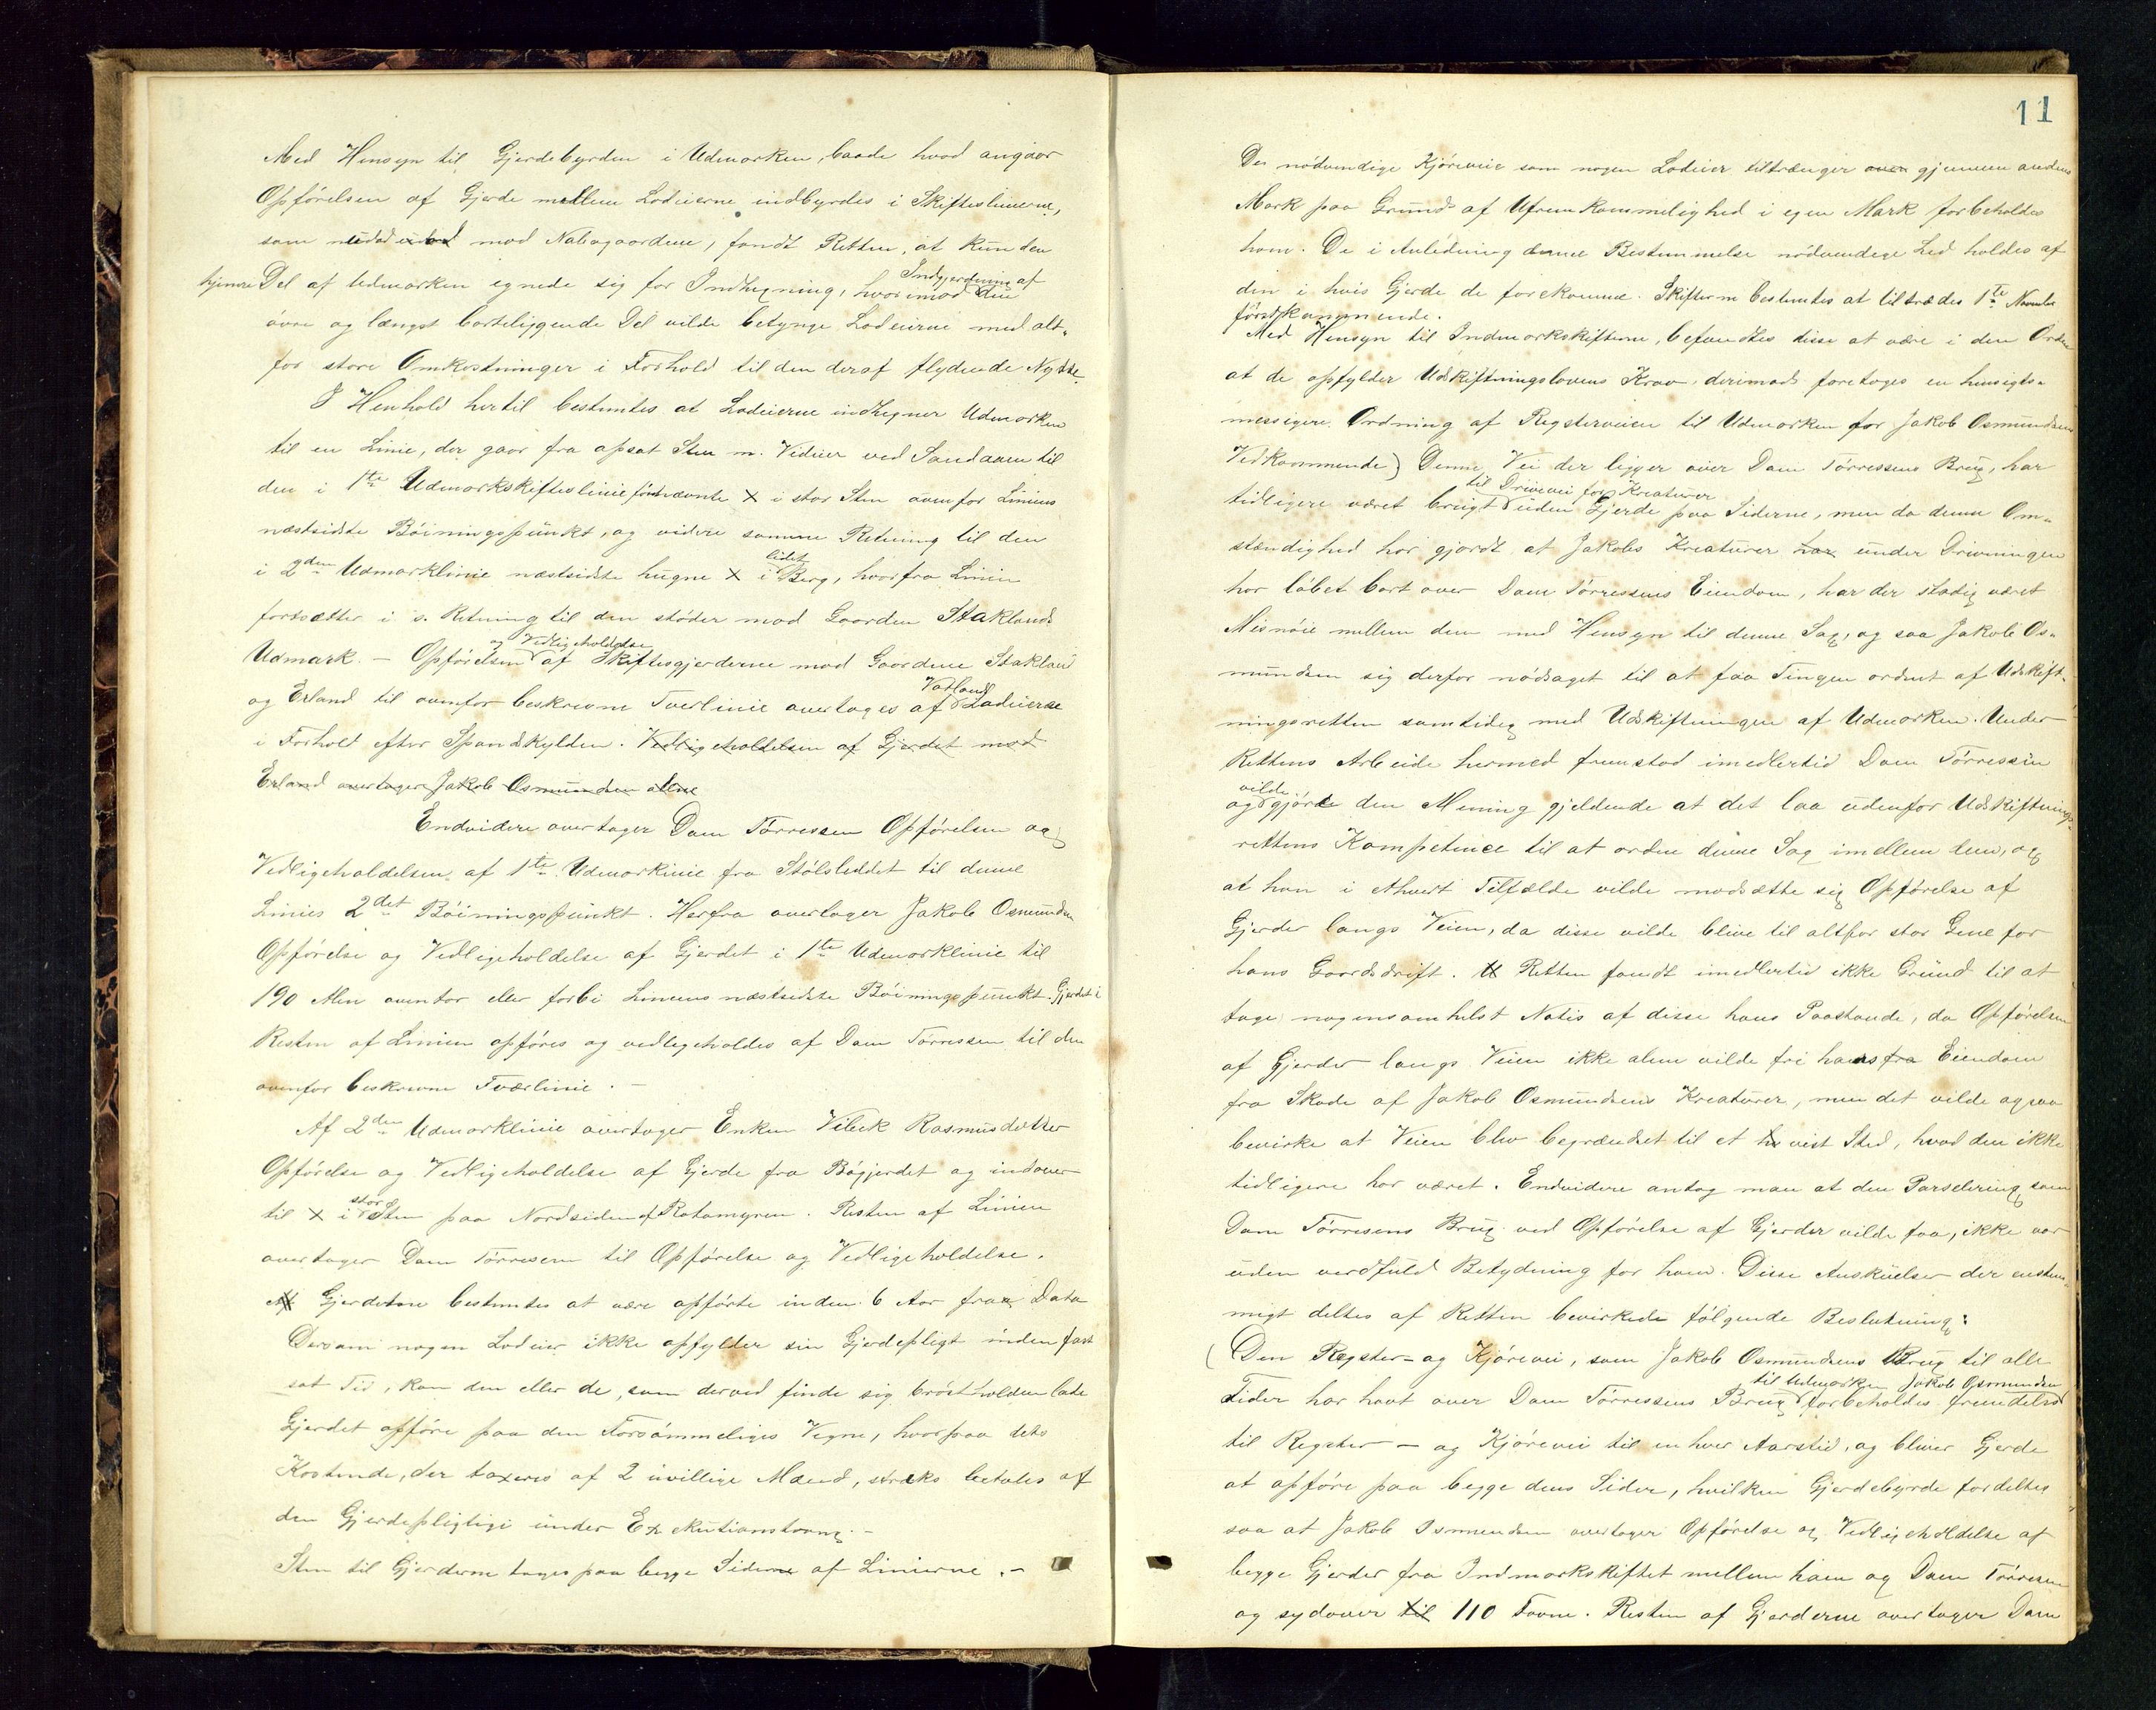 Med Hensyn til Gjerdebyrden i Udmarken, baade hvad angaar
Opførelsen af Gjerde mellem Lodeierne indbyrdes i Skifteslinierne,
som mod Nabogaardene, fandt Retten, at kun den
hjemre Del af Udmarken egnede sig for Indhegning, hvorimod Indgjerdning af den
øvre og længst bortliggende Del vilde betynge Lodeierne med alt-
for store Omkostninger i Forhold til den deraf flydende Nytte.
I Henhold hertil bestemtes at Lodeierne indhegner Udmarken
til en Linie, der gaar fra opsat Sten m. Vidner ved Sandaaen til
den i 1te Udmarkskifteslinie førstnævnte X i stor Sten ovenfor Liniens
næstsidste Bøiningspunkt, og videre samme Retning til den
i 2den Udmarklinie næstsidste hugne X i lidet Berg, hvorfra Linien
fortsætter i s. Retning til den støder mod Gaarden Staklands
Udmark. — Opførelsen og Vedligeholdelse af Skiftesgjerderne mod Gaardene Stakland
og Erland til ovenfor beskrevne Tverlinie overtages af Vatland Lodeierne
i Forhold efter Skylden. Vedligeholdelsen af Gjerdet mod
Erland overtager Jakob Osmundsen alene
Endvidere overtager Dam Tørressen Opførelsen og
Vedligeholdelsen af 1te Udmarkinie fra Stølsleddet til denne
Linies 2det Bøiningspunkt. Herfra overtager Jakob Osmundsen
Opførelse og Vedligeholdelse af Gjerdet i 1te Udmarklinie til
190 Alen ovenfor eller forbi Liniens næstsidste Bøiningspunkt. Gjerdet i
Resten af Linien opføres og vedligeholdes af Dam Tørressen til den
ovenfor beskrevne Tværlinie. —
Af 2den Udmarklinie overtager Enken Vibeck Rasmusdatter
Opførelse og Vedligeholdelse af Gjerde fra Bøgjerdet og indover
til X i stor Sten paa Nordsiden af Rotamyren. Resten af Linien
overtager Dam Tørressen til Opførelse og Vedligeholdelse.
Gjerderne bestemtes at være opførte inden 6 Aar fra Dato
Dersom nogen Lodeier ikke opfylder sin Gjerdepligt inden fast
sat Tid, kan den eller de, som derved finde sig brøstholden lade
Gjerdet opføre paa den Forsømmeliges Vegne, hvorpaa dets
Kostende, der taxeres af 2 uvillige Mænd, straks betales af
den Gjerdepligtige under Exekutionstvang. —
Sten til Gjerderne tages paa begge Siderne af Linierne. —
11
De nødvendige Kjøreveie som nogen Lodeier tiltrænger over gjennem andens
Mark paa Grund af Ufremkommelighed i egen Mark forbeholdes
ham. De i Anledning denne Bestemmelse nødvendige Led holdes af
den i hvis Gjerde de forekomme. Skifterne bestemtes at tiltrædes 1te November
førstkommende.
Med Hensyn til Indmarkskifterne, befandtes disse at være i den Orden
at de opfylder Udskiftningslovens Krav, derimod foretoges en hensigts-
messigere Ordning af Rægsterveien til Udmarken for Jakob Osmundsens
Vedkommende) Denne Vei der ligger over Dam Tørressens Brug, har
tidligere været brugt til Drivevei for Kreaturer uden Gjerde paa Siderne, men da denne Om-
stændighed har gjordt, at Jakobs Kreaturer har under Drivningen
har løbet bort over Dam Tørressens Eiendom, har der stadig været
Misnøie mellem dem med Hensyn til denne Sag, og saa Jakob Os-
mundsen sig derfor nødsaget til at faa Tingen ordnet af Udskift-
ningsretten samtidig med Udskiftningen af Udmarken. Under
Rettens Arbeide hermed fremstod imedlertid Dam Tørressen
og vilde gjøre den Mening gjeldende at det laa udenfor Udskiftnings-
rettens Kompetence til at ordne denne Sag imellem dem, og
at han i ethvert Tilfælde vilde modsætte sig Opførelse af
Gjerder langs Veien, da disse vilde blive til altfor stor Gene for
hans Gaardsdrift. Retten fandt imedlertid ikke Grund til at
tage nogensomhelst Notis af disse hans Paastande, da Opførelsen
af Gjerder langs Veien ikke alene vilde fri hans fra Eiendom
fra Skade af Jakob Osmundsens Kreaturer, men det vilde ogsaa
bevirke at Veien blev begrændset til et vist Sted, hvad den ikke
tidligere har været. Endvidere antog man at den Parselering som
Dam Tørresens Brug ved Opførelse af Gjerder vilde faa, ikke var
uden verdfuld Betydning for ham. Disse Anskuelser der enstem-
migt deltes af Retten bevirkede følgende Beslutning:
(Den Rægster- og Kjørevei, som Jakob Osmundsens Brug til alle
Tider har havt over Dam Tørressens Brug til Udmarken forbeholdes Jakob Osmundsen fremdeles
til Rægster — og Kjørevei til enhver Aarstid, og bliver Gjerde
at opføre paa begge dens Sider, hvilken Gjerdebyrde fordeltes
saa at Jakob Osmundsen overtager Opførelse og Vedligeholdelse af
begge Gjerder fra Indmarkskiftet mellem ham og Dam Tørresen
og sydover til 110 Favne. Resten af Gjerderne overtager Dam